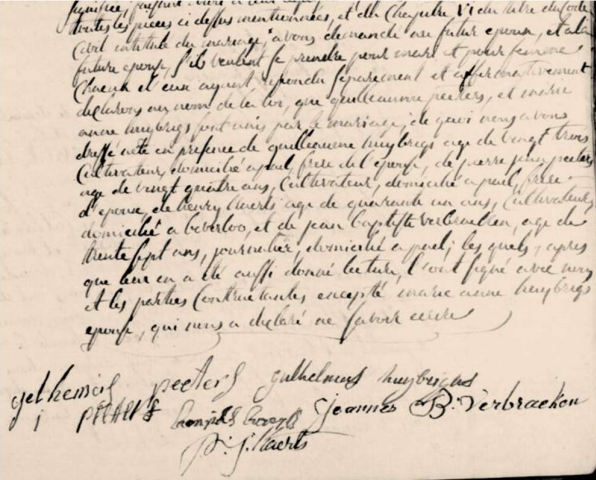 toutes les pieces ci dessus mentionnées, et du Chapitre VI du titre du Code
Civil intitulé du mariage, avons demandé au futur epoux, et a la
future epouse, s'ils veulent se prendre pour mari et pour femme
Chacun d'eux ayant repondu separement et affirmativement
declarons au nom de la loi, que guilleaume peeters, et marie
anne huybregs sont unis par le mariage, de quoi nous avons
dressé acte en presence de guilleaume huybregs age de vingt trois
Cultivateur, domicilié a paul, frere de l'epouse, de pierre jean peeters
age de vingt quatre ans, Cultivateur, domicilié a paul, frere
d'epoux, de henry age de quarante un ans, Cultivateur
domicilié a beverloo, et de jean baptiste verbraeken, age de
trente sept ans, journalier, domicilié a paul; les quels, apres
que leur en a été aussi donné lecture, l'ont signé avec nous
et les parties Contractantes excepté marie anne huybregs
epouse, qui nous a declaré ne savoir ecrire
peeters guilhelmus huybrighs
Joannes B. Verbraeken